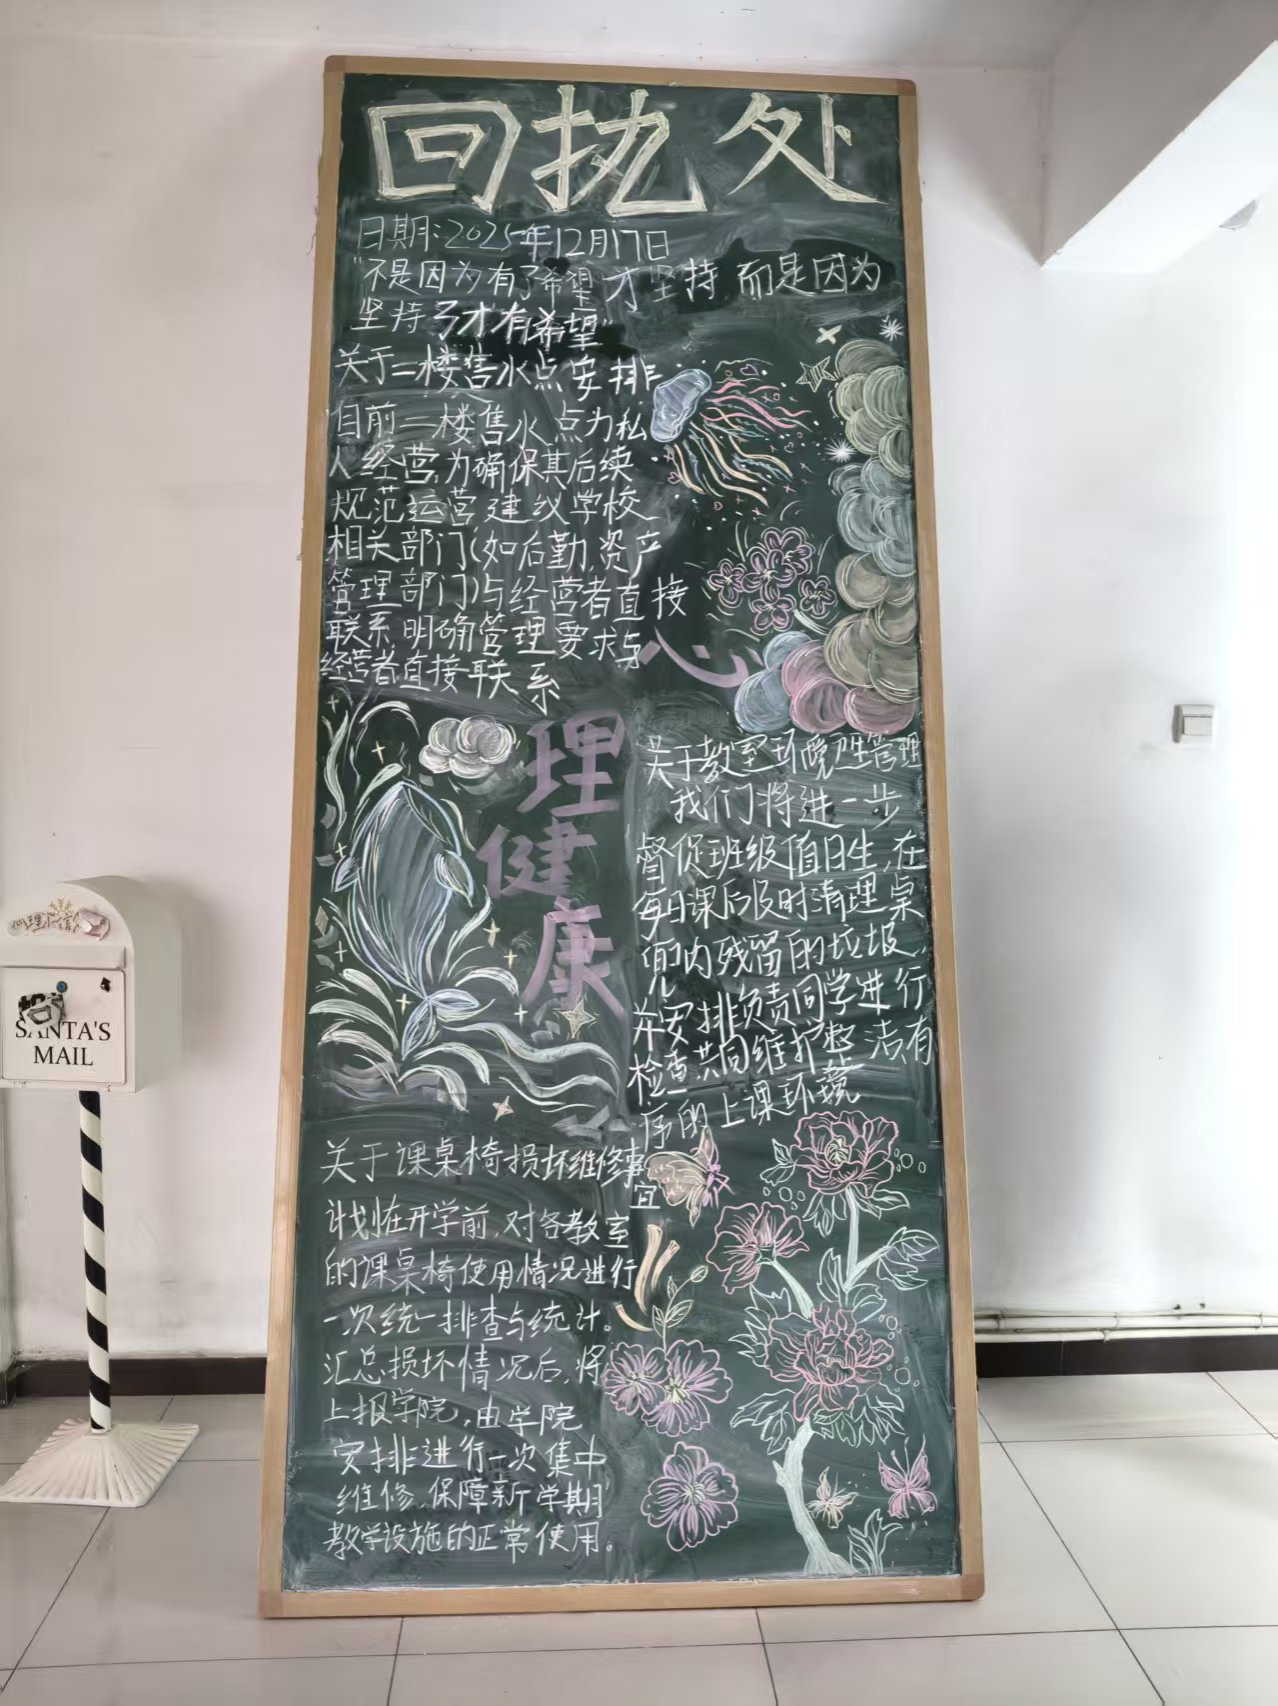 回执处
日期:2025年12月17日
"不是因为有了希望才坚持,而是因为
坚持了才有希望"
关于二楼售水点安排
目前二楼售水点为私
人经营,为确保其后续
规范运营建议学校
相关部门(如后勤,资产
管理部门)与经营者直接
联系明确管理要求与
经营者直接联系
心
理
健
康
关于教室环境卫生管理
我们将进一步
督促班级值日生,在
每日课后及时清理桌
兜内残留的垃圾,
并安排负责同学进行
检查.共同维护整洁,有
序的上课环境
关于课桌椅损坏维修事
宜
计划在开学前,对各教室
的课桌椅使用情况进行
一次统一排查与统计。
汇总损坏情况后,将
上报学院,由学院
安排进行一次集中
维修,保障新学期
教学设施的正常使用。
心理
SANTA'S
MAIL